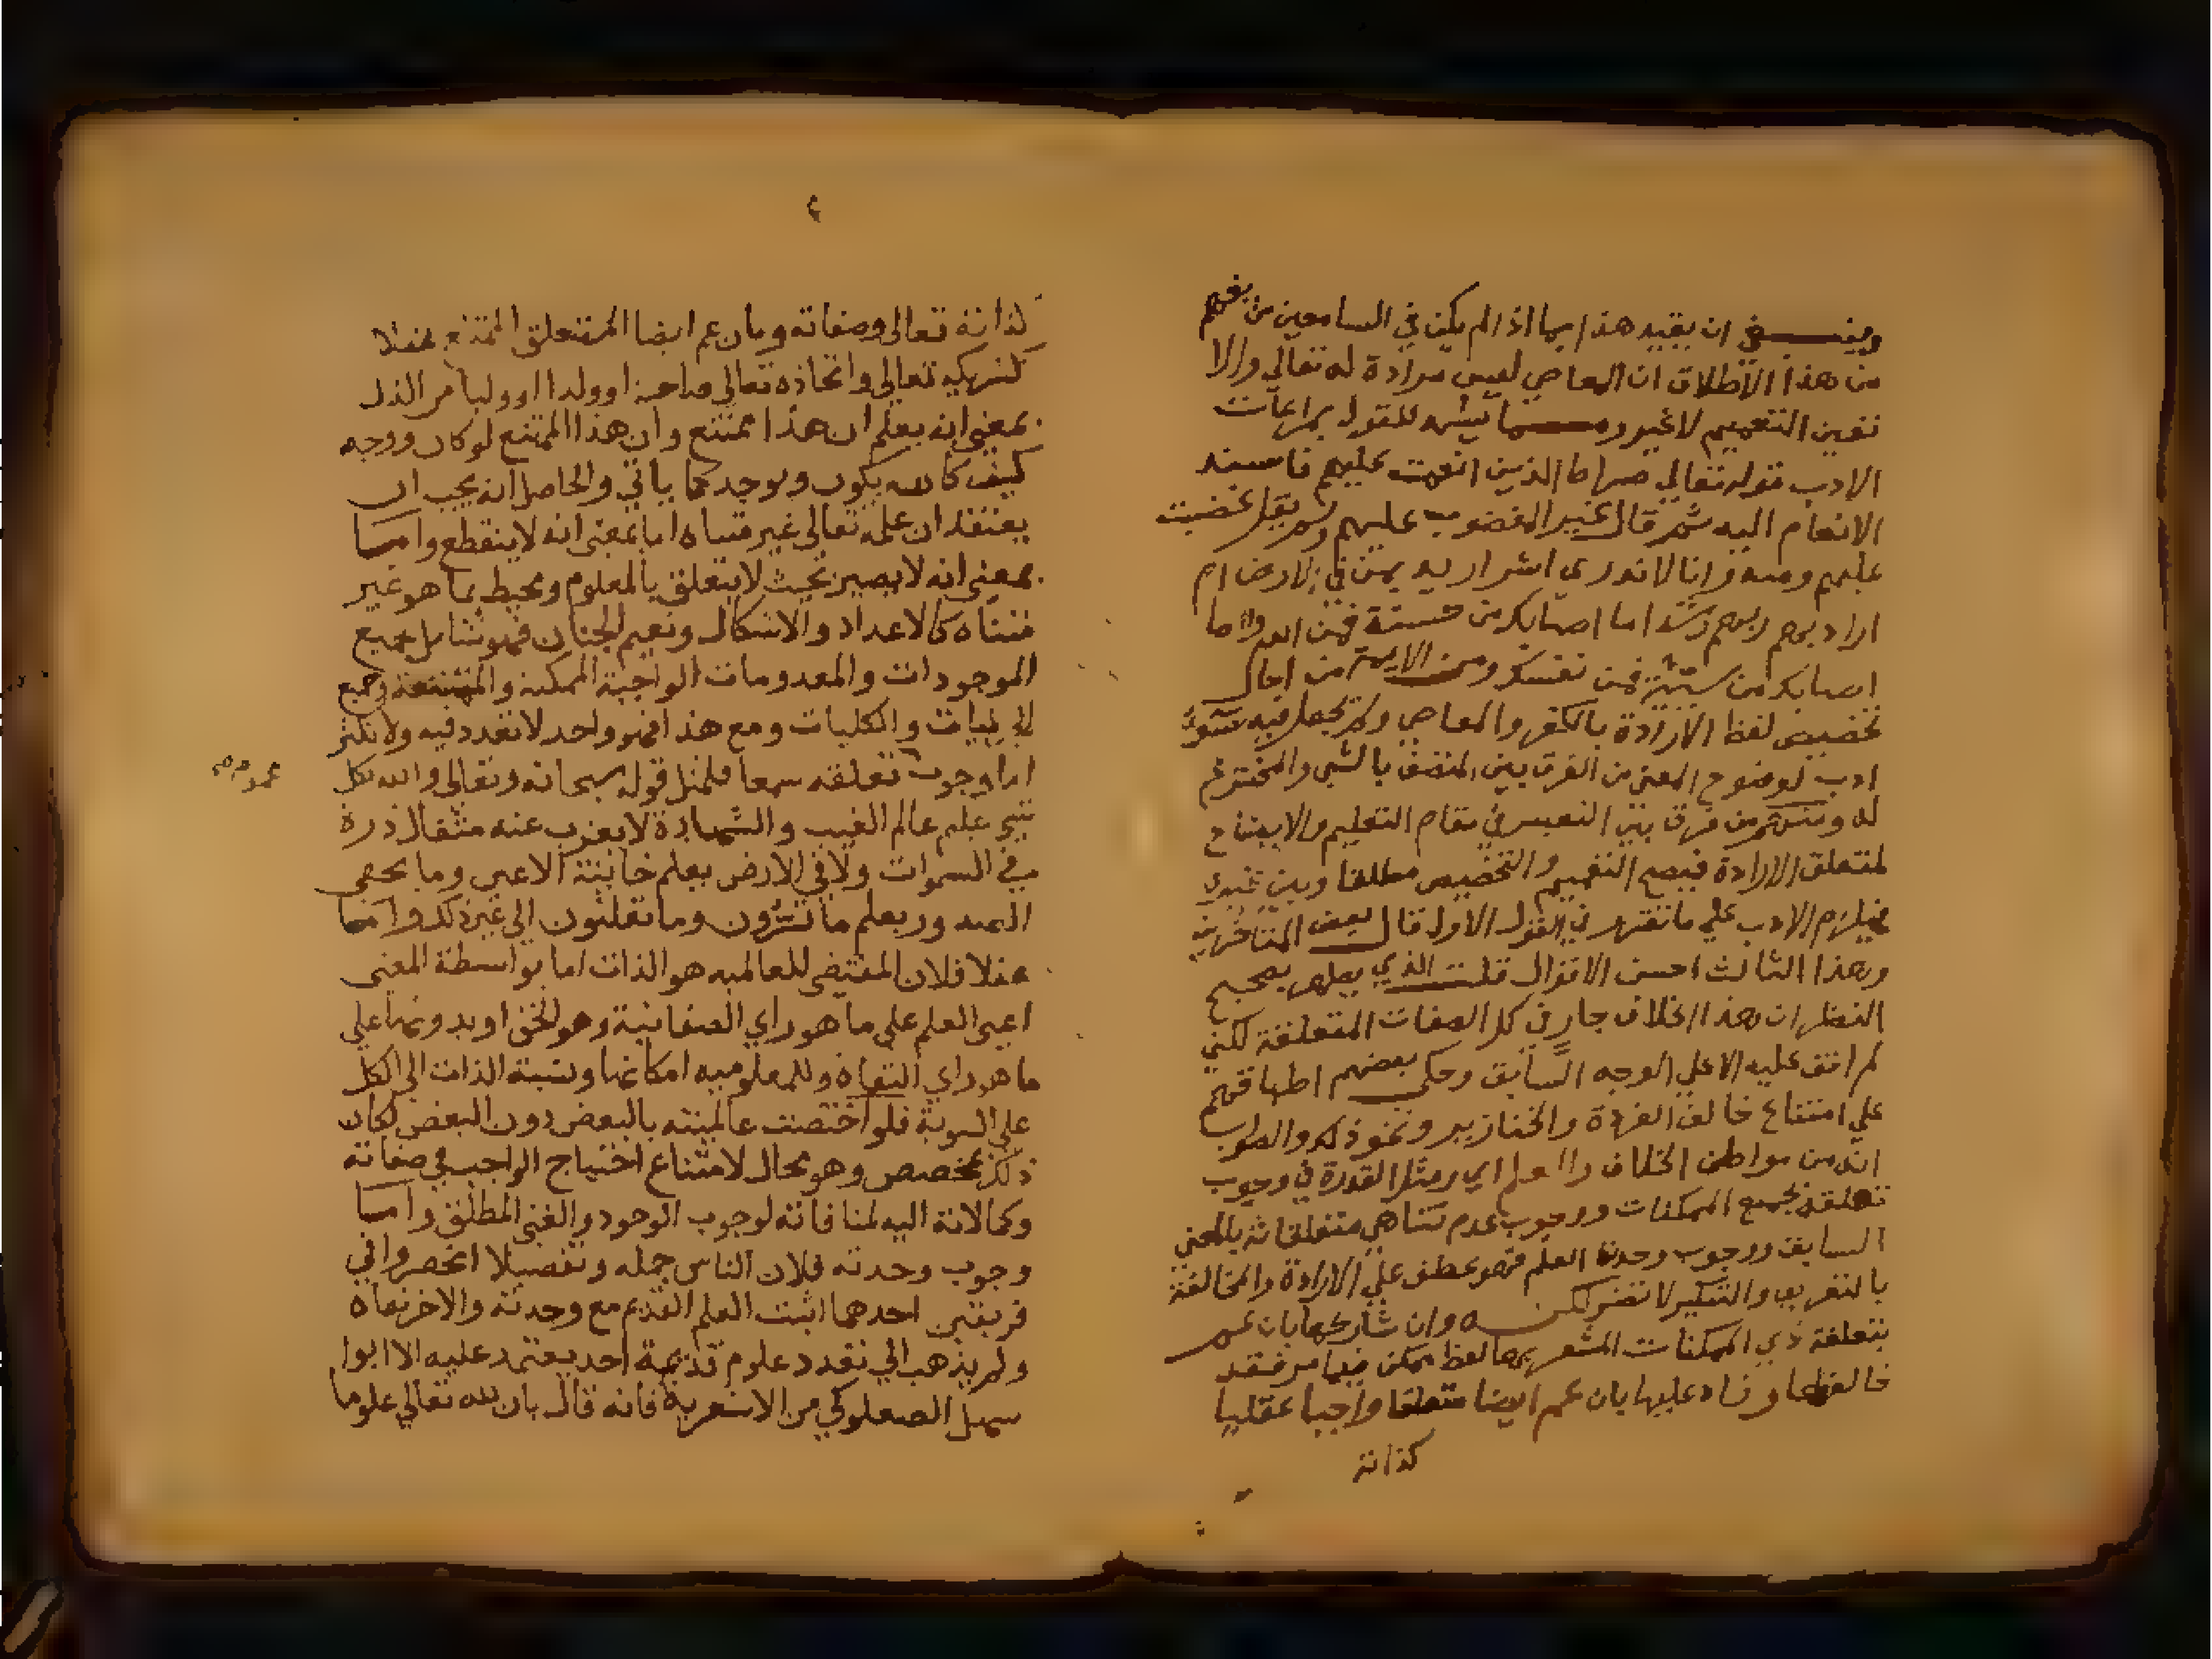 وينبغي ان يقيد هذا بما اذا لم يكن في السامعين من يفهم
من هذا الاطلاق ان المعاصي ليس مرادة له تعالي والا
تعين التعميم لا غير ومما يشهد للقول بمراعات
الادب قوله تعالي صراط الذين انعمت عليهم فاسند
الانعام اليه ثم قال غير المغضوب عليهم ولم يقل غضبت
عليهم ومنه وانا لا ندري اشر اريد بمن في الارض ام
اراد بهم ربهم رشدا ما اصابك من حسنة فمن الله وما
اصابك من سيئة فمن نفسك ومن الايمة من اجاز
تخصيص لفظ الارادة بالكفر والمعاصي ولم يجعل فيه سوء
ادب لوضوح المعنى من الفرق بين المتصف بالشي والمخترع
له ومنهم من فرق بين التعبير في مقام التعليم والايضاح
لمتعلق الارادة فيصح التعميم والتخصيص مطلقا وبين غيره
فيلزم الادب علي ما تقرر في القول الاول قال بعض المتاخرين
وهذا الثالث احسن الاقوال قلت الذي يظهر بصحيح
النظر ان هذا الخلاف جار في كل الصفات المتعلقة لكني
لم اقف عليه الا علي الوجه السابق وحكى بعضهم اطباقهم
علي امتناع خالق القردة والخنازير ونحو ذلك والصواب
انه من مواطن الخلاف والعلم اي ومثل القدرة في وجوب
تعلقه بجميع الممكنات ووجوب عدم تناهي متعلقاته بالمعني
السابق ووجوب وحدة العلم فهو عطف علي الارادة والمخالفة
بالتعريف والتنكير لا تضر لكنه وان شاركها بان عم
بتعلقه ذي الممكنات المشعر بها لفظ ممكن فيما مر فقد
خالفها وزاد عليها بان عم ايضا متعلقا واجبا عقليا
كذاته
كذاته تعالى وصفاته وبان عم ايضا المتعلق الممتنع عقلا
كشريكه تعالى واتخاذه تعالى صاحبة او ولدا او وليا من الذل
بمعنى انه يعلم ان هذا ممتنع وان هذا الممتنع لو كان ووجد
كيف كان يكون ويوجد كما ياتي والحاصل انه يجب ان
يعتقد ان علمه تعالى غير متناه اما بمعنى انه لا ينقطع واما
بمعنى انه لا يصير بحيث لا يتعلق بالمعلوم ومحيط بما هو غير
متناه كالاعداد والاشكال ونعيم الجنان فهو شامل لجميع
الموجودات والمعدومات الواجبة الممكنة والممتنعة وجميع
الجزئيات والكليات ومع هذا فهو واحد لا تعدد فيه ولا تكثر
اما وجوب تعلقه سمعا فلمثل قوله سبحانه وتعالى والله بكل
شي عليم عالم الغيب والشهادة لا يعزب عنه مثقال ذرة
في السموات ولا في الارض يعلم خائنة الاعين وما تخفي
الصدور يعلم ما تسرون وما تعلنون الى غير ذلك واما
عقلا فلان المقتضى للعالمية هو الذات اما بواسطة المعنى
اعنى العلم على ما هو راي الصفاتية وهو الحق او بدونها علي
ما هو راي النفاة وللمعلومية امكانها ونسبة الذات الى الكل
على السوية فلو اختصت عالميته بالبعض دون البعض لكان
ذلك بمخصص وهو محال لامتناع احتياج الواجب في صفاته
وكمالاته اليه لمنافاته لوجوب الوجود والغنى المطلق واما
وجوب وحدته فلان الناس جملة وتفصيلا انحصروا في
فريقين احدهما اثبت العلم القديم مع وحدته والاخر نفاه
ولم يذهب الى تعدد علوم قديمة احد يعتمد عليه الا ابوا
سهل الصعلوكي من الاشعرية فانه قال بان لله تعالي علوما